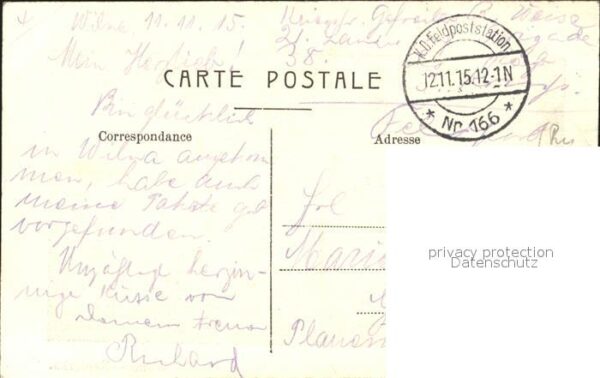 Wilna, 11.11.15.
Mein Herzlieb!
Bin glücklich
in Wilna angekom
men, habe auch
meine Pakete gut
vorgefunden.
Unzählige herzin-
nige Küsse von
Deinem treuen
Richard
CARTE POSTALE
Correspondance
Adresse
Gefreiter R. Weise
21. Landw.
38.
K.D. Feldpoststation
12.11.15.12-1N
* Nr. 166 *
Frl
Marie
Plauen
privacy protection
Datenschutz